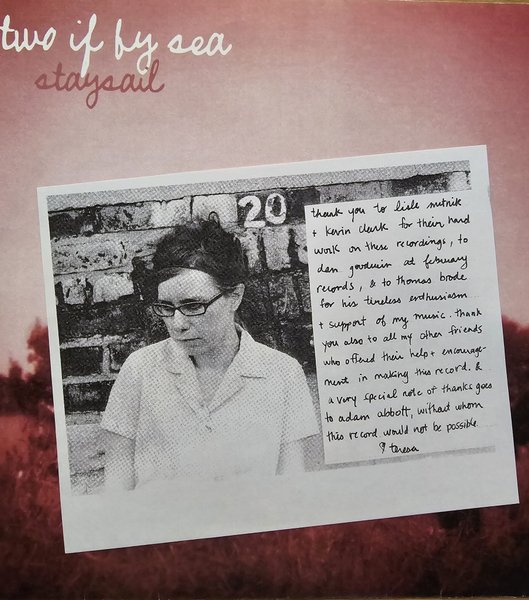 two if by sea
staysail
20
thank you to lisle mitnik
+ kevin clark for their hard
work on these recordings, to
dan goodwin at february
records, & to thomas brode
for his timeless enthusiasm
+ support of my music. thank
you also to all my other friends
who offered their help + encourage-
ment in making this record. &
a very special note of thanks goes
to adam abbott, without whom
this record would not be possible
teresa